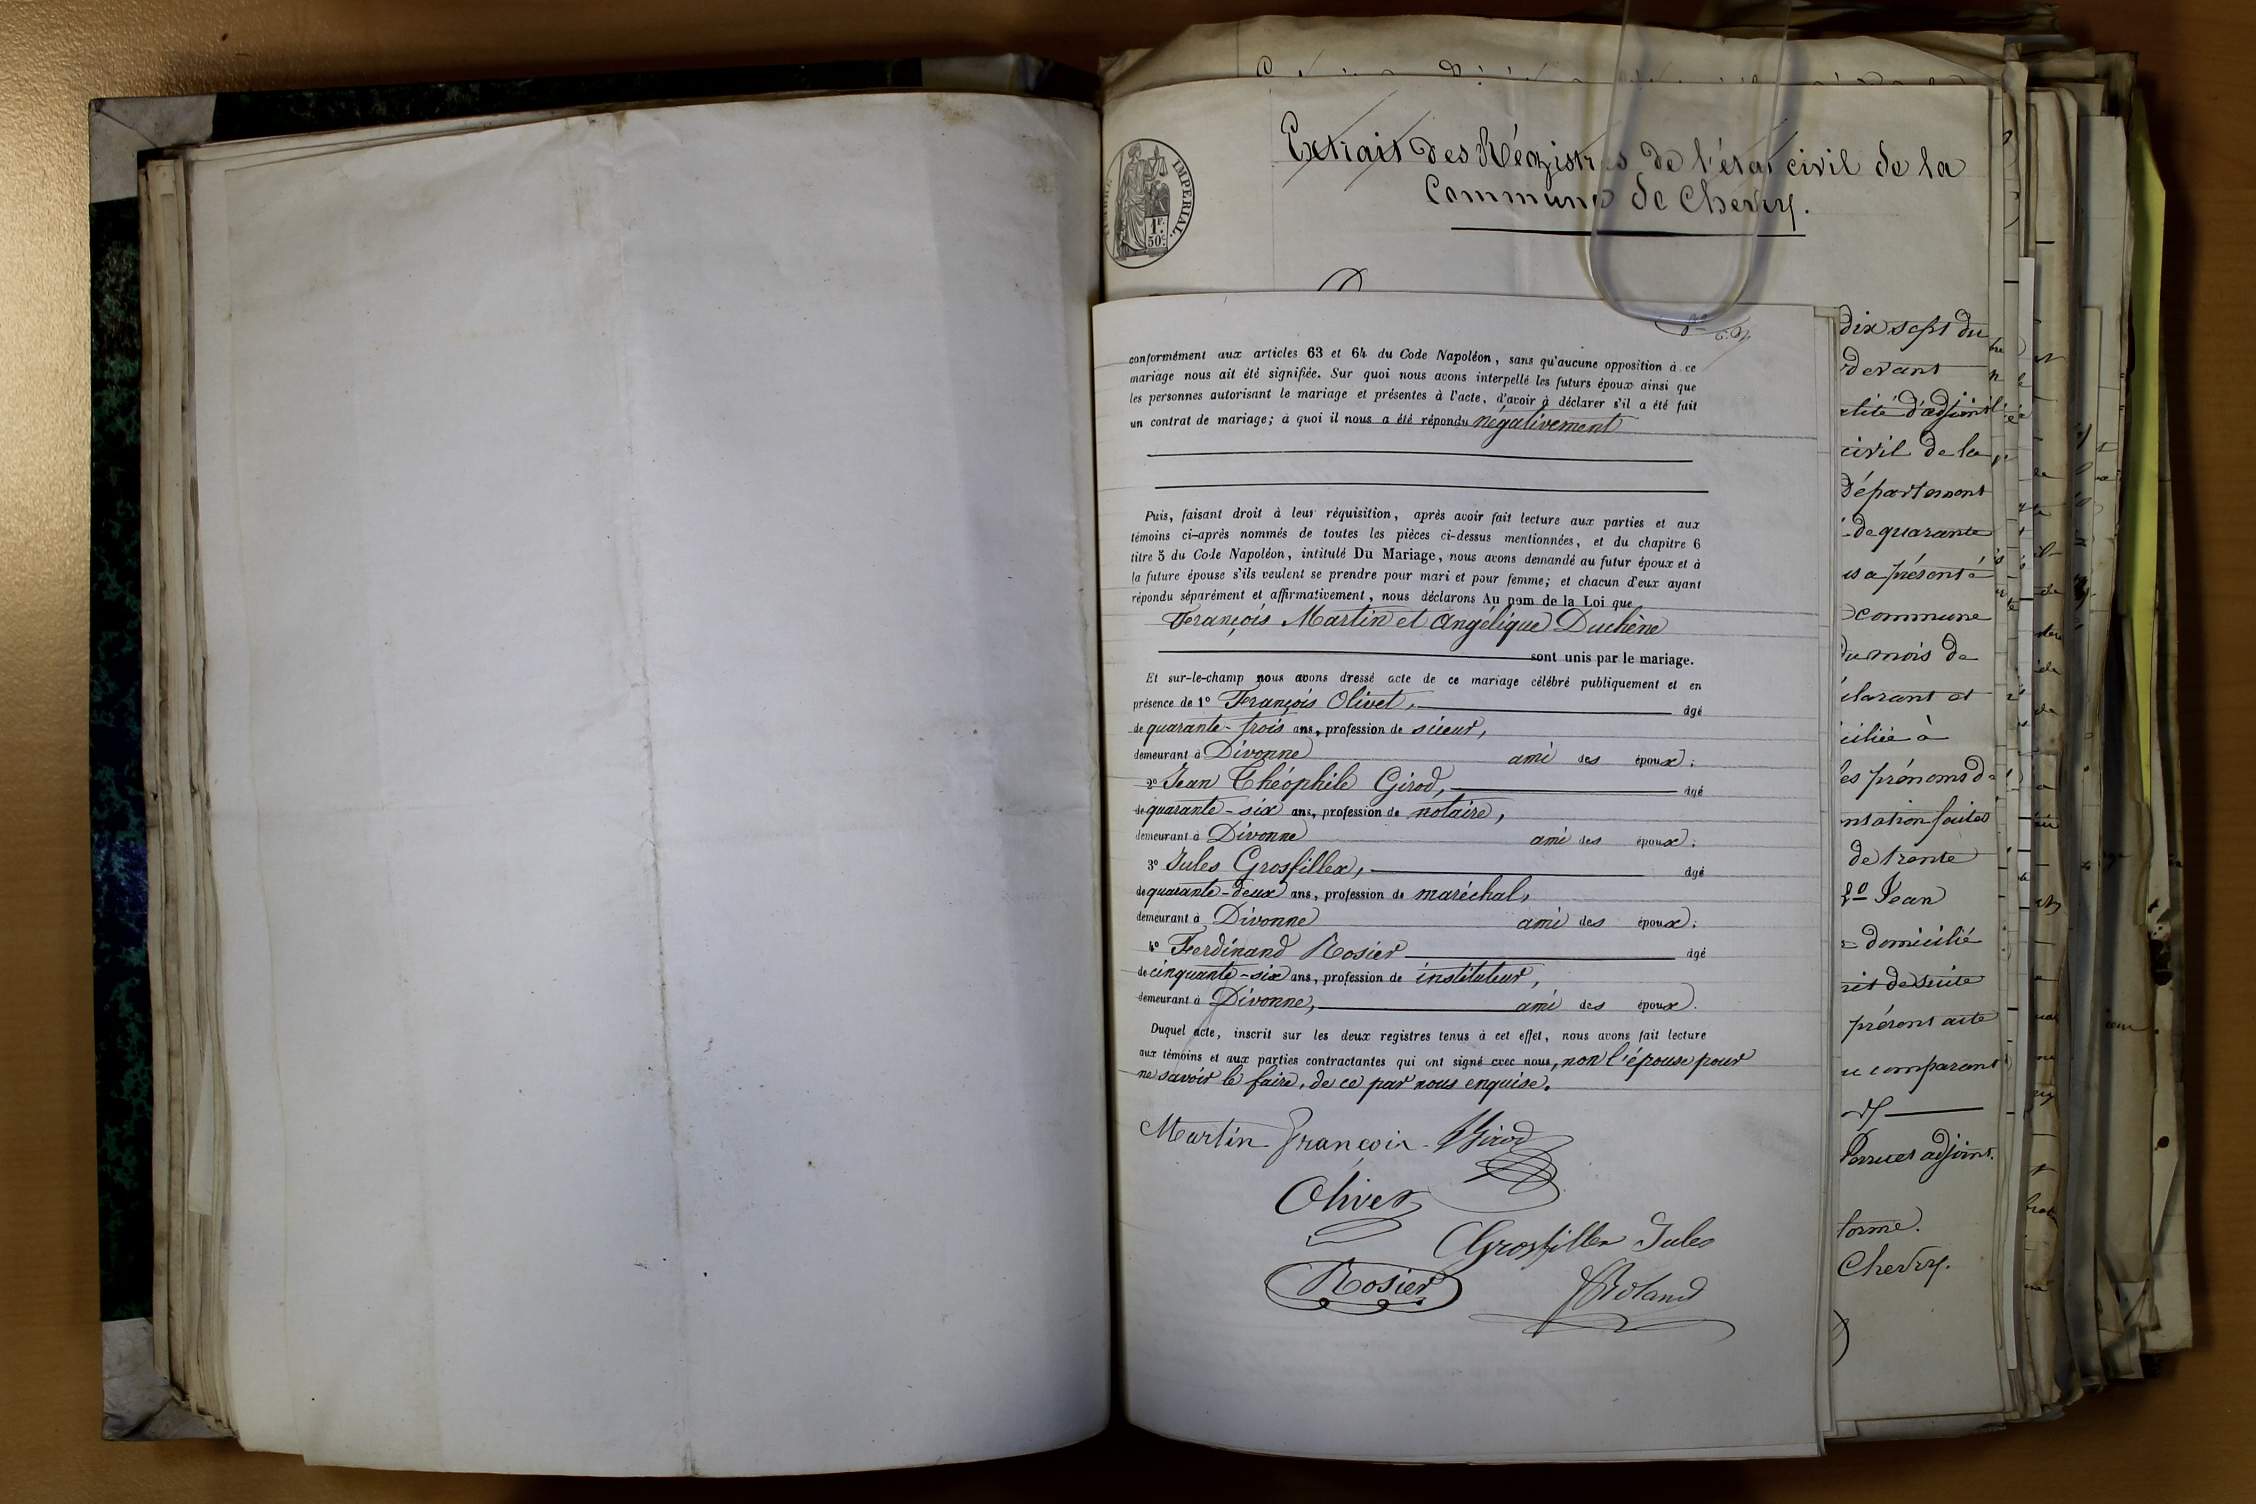 Extrait des Régistres de l'état civil de la
Commune de Chevry.
IMPERIAL.
1F.
50c.
conformément aux articles 63 et 64 du Code Napoléon, sans qu'aucune opposition à ce
mariage nous ait été signifiée. Sur quoi nous avons interpellé les futurs époux ainsi que
les personnes autorisant le mariage et présentes à l'acte, d'avoir à déclarer s'il a été fait
un contrat de mariage; à quoi il nous a été répondu négativement
Puis, faisant droit à leur réquisition, après avoir fait lecture aux parties et aux
témoins ci-après nommés de toutes les pièces ci-dessus mentionnées, et du chapitre 6
titre 5 du Code Napoléon, intitulé Du Mariage, nous avons demandé au futur époux et à
la future épouse s'ils veulent se prendre pour mari et pour femme; et chacun d'eux ayant
répondu séparément et affirmativement, nous déclarons Au nom de la Loi que
François Martin et Angélique Duchêne
sont unis par le mariage.
Et sur-le-champ nous avons dressé acte de ce mariage célébré publiquement et en
présence de 1° François Olivet, âgé
de quarante-trois ans, profession de scieur,
demeurant à Divonne ami des époux;
2° Jean Théophile Girod, âgé
de quarante-six ans, profession de notaire,
demeurant à Divonne ami des époux;
3° Jules Grosfillex, âgé
de quarante-deux ans, profession de maréchal,
demeurant à Divonne ami des époux;
4° Ferdinand Rosier âgé
de cinquante-six ans, profession de instituteur,
demeurant à Divonne, ami des époux.
Duquel acte, inscrit sur les deux registres tenus à cet effet, nous avons fait lecture
aux témoins et aux parties contractantes qui ont signé avec nous, non l'épouse pour
ne savoir le faire, de ce par nous enquise.
Martin François Girod
Olivet
Grosfillex Jules
Rosier
Roland
dix sept du
devant
d'adjoint
civil de la
Département
de quarante
a présenté
commune
du mois de
déclarant et
à
prénoms de
faites
de trente
2° Jean
domicilié
de suite
présent acte
comparant
adjoint.
Chevry.